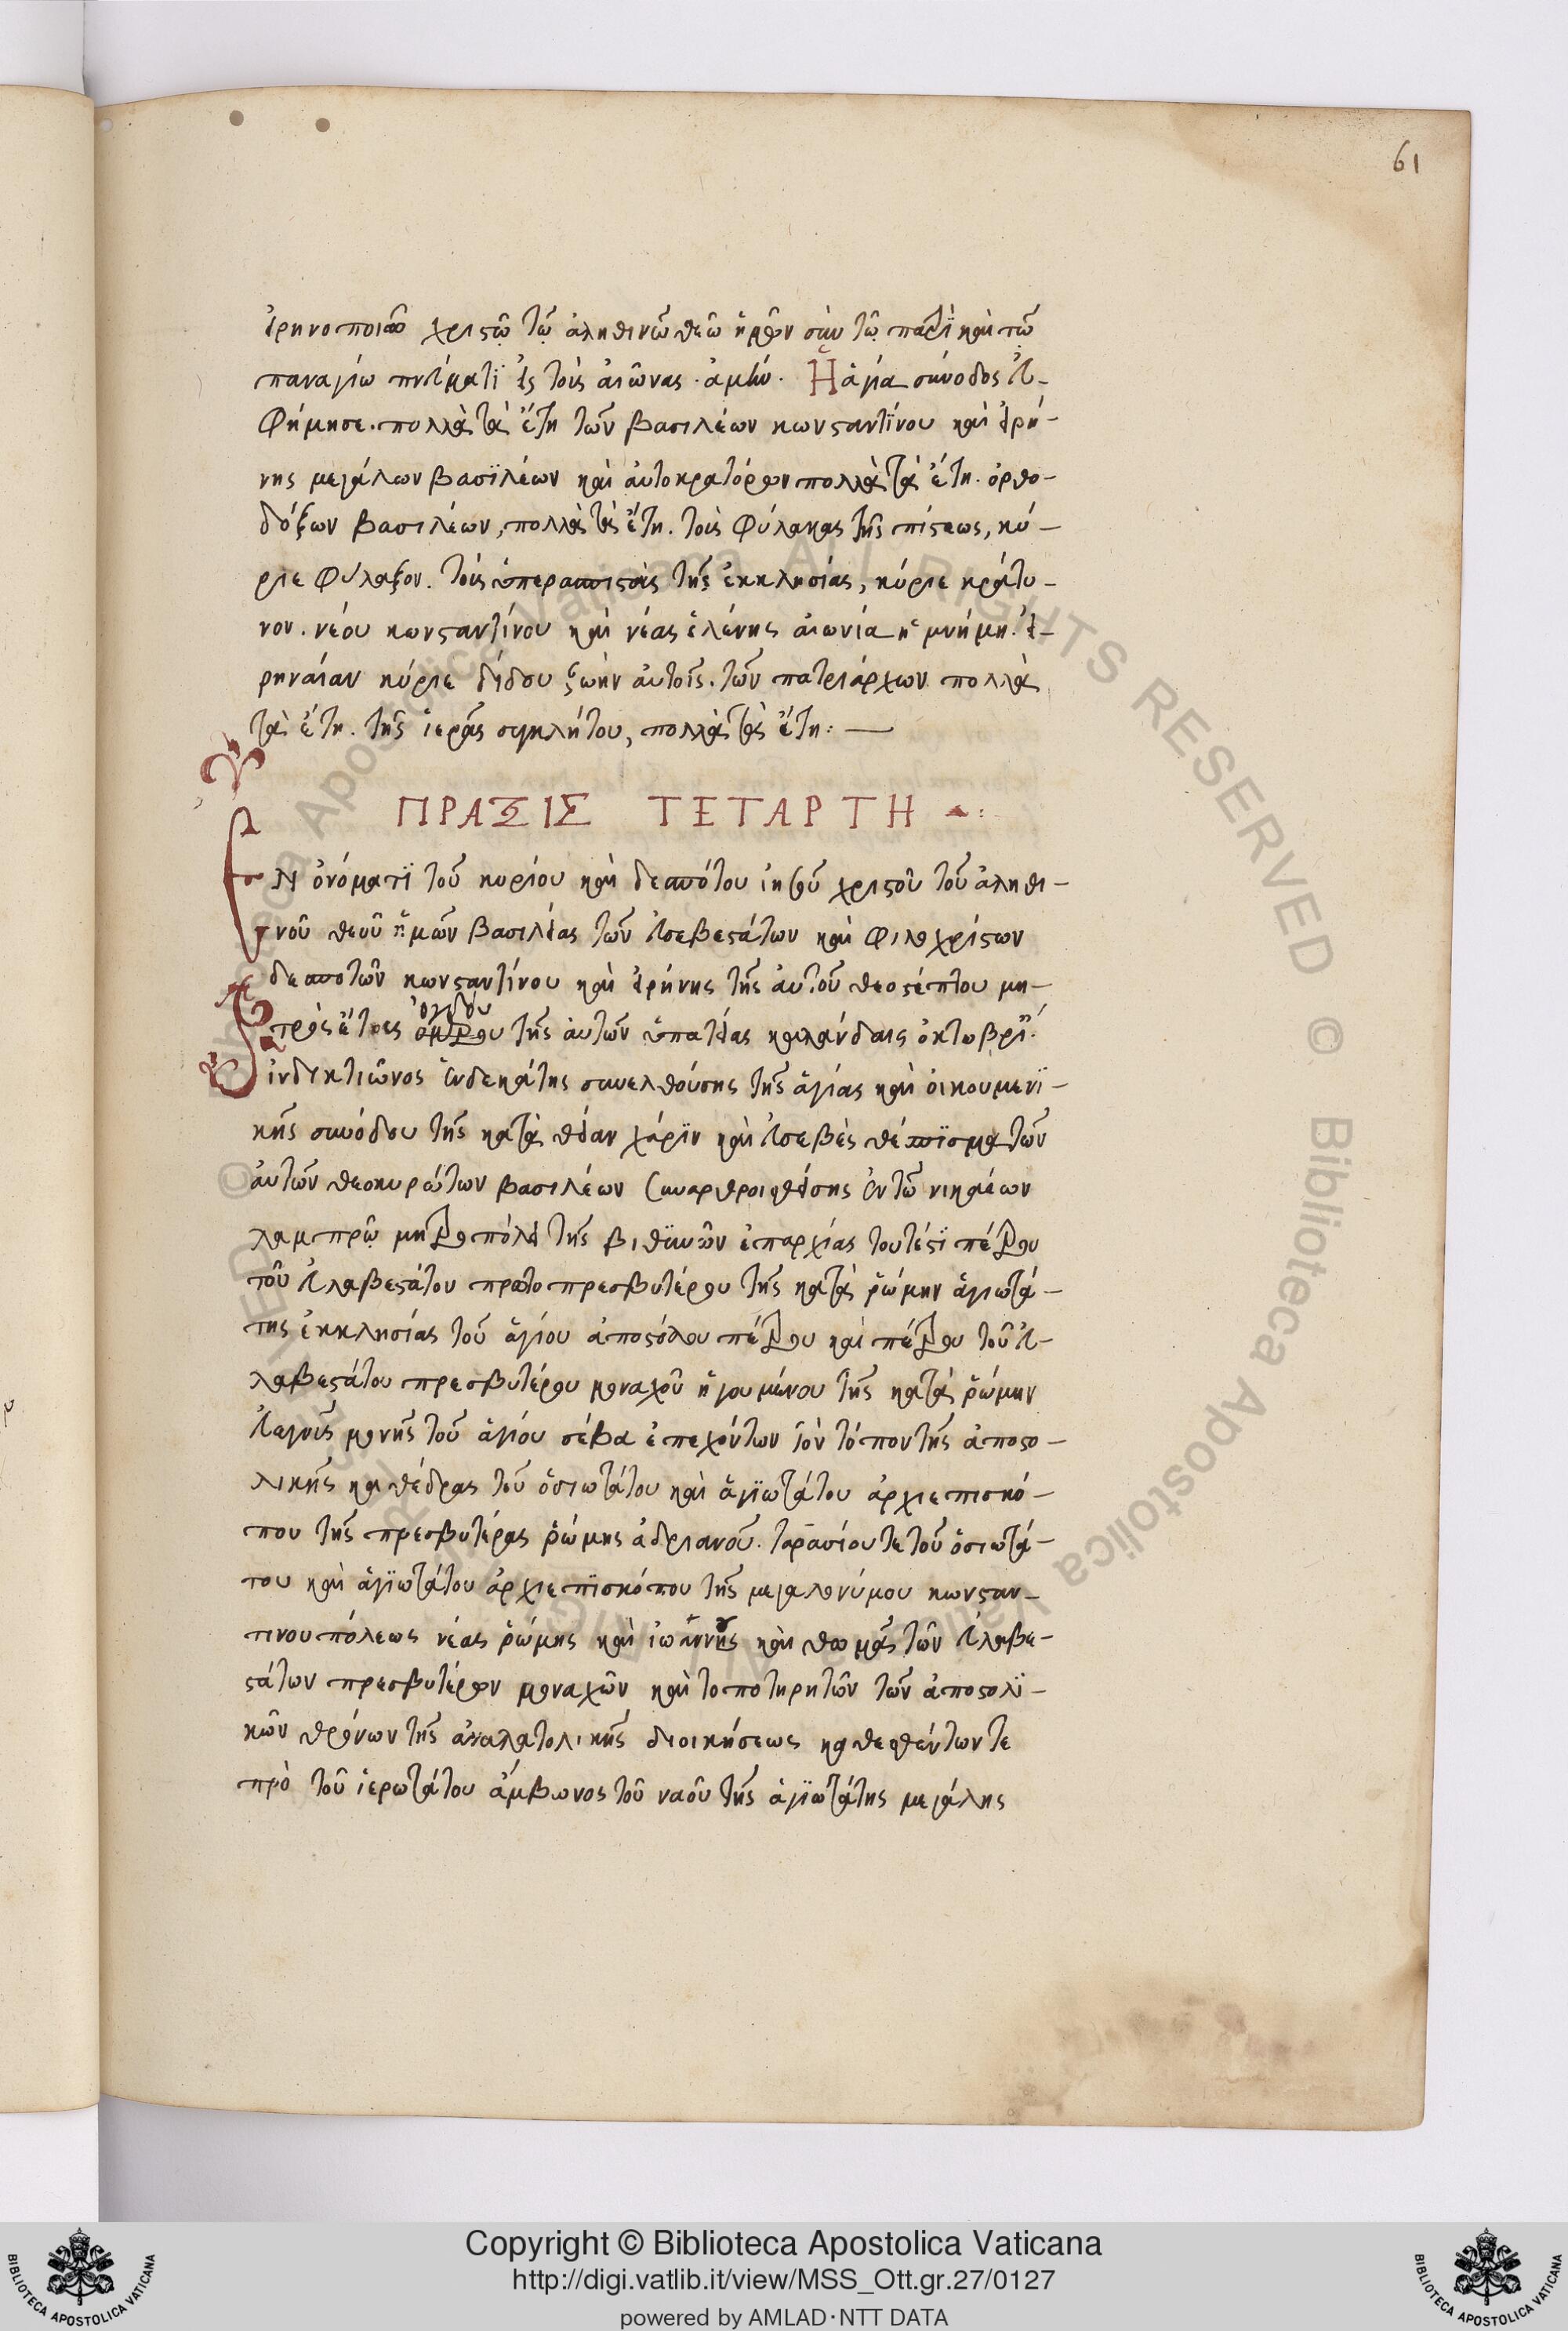 61
εἰρηνοποιῷ χριστῷ τῷ ἀληθινῷ θεῷ ἡμῶν σὺν τῷ πατρὶ καὶ τῷ
παναγίω πνεύματι εἰς τοὺς αἰῶνας. ἀμήν. Ἡ ἁγία σύνοδος εὐ-
φήμησε. πολλὰ τὰ ἔτη τῶν βασιλέων κωνσταντίνου καὶ εἰρή-
νης μεγάλων βασϊλέων καὶ αὐτοκρατόρων πολλὰ τὰ ἔτη. ὀρθο-
δόξων βασιλέων, πολλὰ τὰ ἔτη. τοὺς φύλακας τῆς πίστεως, κύ-
ριε φύλαξον. τοὺς ὑπερασπιστὰς τῆς ἐκκλησίας, κύριε κράτυ-
νον. νέου κωνσταντίνου καὶ νέας ἑλένης αἰωνία ἡ μνήμη. εἰ-
ρηναίαν κύριε δίδου ζωὴν αὐτοῖς. τῶν πατριάρχων πολλὰ
τὰ ἔτη. τῆς ἱερᾶς συγκλήτου, πολλὰ τὰ ἔτη: —
ΠΡΑΞΙΣ ΤΕΤΑΡΤΗ
Ἐν ὀνόματϊ τοῦ κυρίου καὶ δεσπότου ἰησοῦ χριστοῦ τοῦ ἀληθι-
νοῦ θεοῦ ἡμῶν βασιλείας τῶν εὐσεβεστάτων καὶ φιλοχρίστων
δεσποτῶν κωνσταντίνου καὶ εἰρήνης τῆς αὐτοῦ θεοσέπτου μη-
ὀγδόου
τρὸς ἔτους τῆς αὐτῶν ὑπατείας καλάνδαις ὀκτωβρί.
ἰνδικτιῶνος ἑνδεκάτης συνελθούσης τῆς ἁγίας καὶ οἰκουμενϊ-
κῆς συνόδου τῆς κατὰ θείαν χάρϊν καὶ εὐσεβὲς θέσπϊσμα τῶν
αὐτῶν θεοκυρώτων βασιλέων συναρθροισθείσης ἐν τῶ νικαέων
λαμπρᾷ μητροπόλει τῆς βιθϋνῶν ἐπαρχίας τουτέστϊ πέτρου
τοῦ εὐλαβεστάτου πρωτοπρεσβυτέρου τῆς κατὰ ῥώμην ἁγιωτά-
της ἐκκλησίας τοῦ ἁγίου ἀποστόλου πέτρου καὶ πέτρου τοῦ εὐ-
λαβεστάτου πρεσβυτέρου μοναχοῦ ἡγουμένου τῆς κατὰ ῥώμην
εὐαγοῦς μονῆς τοῦ ἁγίου σάβα ἐπεχόντων τὸν τόπον τῆς ἀποστο-
λικῆς καθέδρας τοῦ ὁσιωτάτου καὶ ἁγϊωτάτου ἀρχιεπισκό-
που τῆς πρεσβυτέρας ῥώμης ἀδριανοῦ. ταρασίου τε τοῦ ὁσιωτά-
του καὶ ἁγϊωτάτου ἀρχιεπϊσκόπου τῆς μεγαλονύμου κωνσταν-
τινουπόλεως νέας ῥώμης καὶ ἰωάννου καὶ θωμᾶ τῶν εὐλαβε-
στάτων πρεσβυτέρων μοναχῶν καὶ τοποτηρητῶν τῶν ἀποστολϊ-
κῶν θρόνων τῆς ἀνατολικῆς διοικήσεως καθεσθέντων τε
πρὸ τοῦ ἱερωτάτου ἄμβωνος τοῦ ναοῦ τῆς ἁγϊωτάτης μεγάλης
Copyright © Biblioteca Apostolica Vaticana
http://digi.vatlib.it/view/MSS_Ott.gr.27/0127
powered by AMLAD·NTT DATA